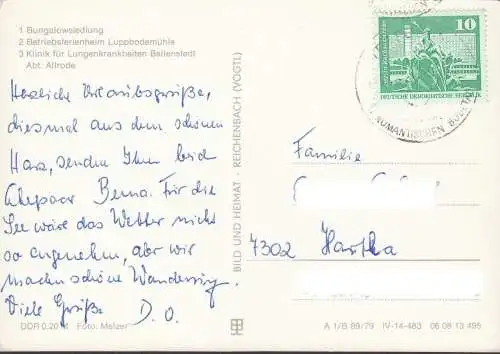 1 Bungalowsiedlung
2 Betriebsferienheim Luppbodemühle
3 Klinik für Lungenkrankheiten Ballenstedt
Abt. Allrode
Herzliche Urlaubsgrüße,
diesmal aus dem schönen
Harz, senden Ihnen beid
Ehepaar Für die
See wäre das Wetter nicht
so angenehm, aber wir
machen schöne Wanderung.
Viele Grüße D. O.
DDR 0.20 M Foto: Melzer
BILD UND HEIMAT · REICHENBACH (VOGTL)
10
DEUTSCHE DEMOKRATISCHE REPUBLIK
ROMANTISCHEN
Familie
7302 Hartha
A 1/B 89/79 IV-14-483 06 08 13 495